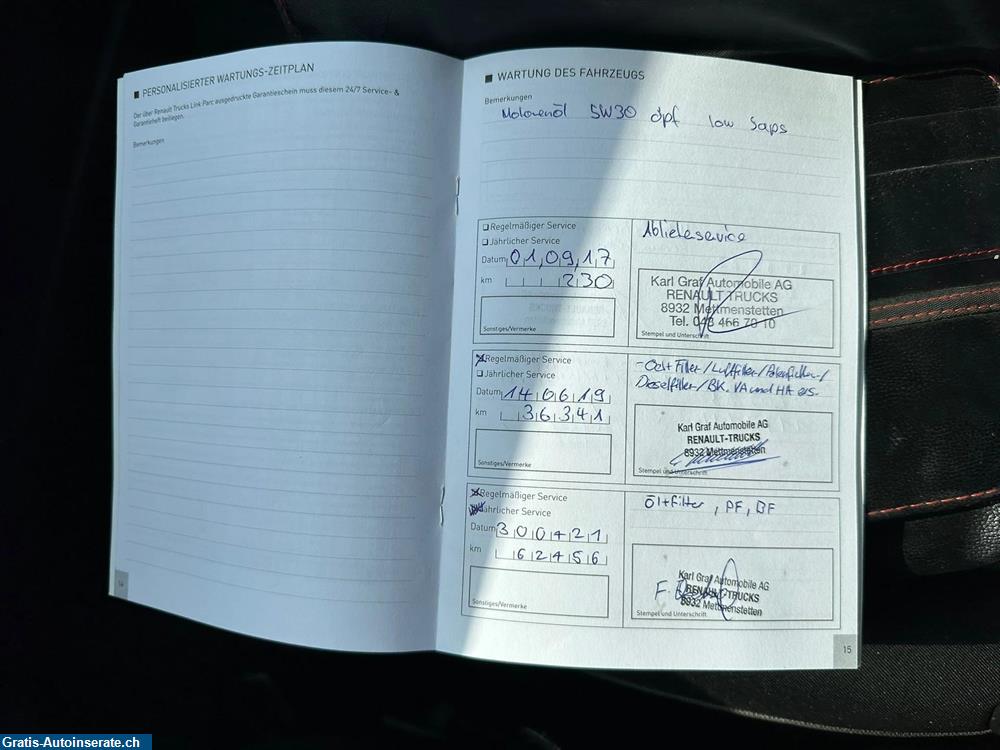 PERSONALISIERTER WARTUNGS-ZEITPLAN
Der über Renault Trucks Link Parc ausgedruckte Garantieschein muss diesem 24/7 Service- &
Garantieheft beiliegen.
Bemerkungen
14
WARTUNG DES FAHRZEUGS
Bemerkungen
Motorenöl 5W30 dpf low Saps
Regelmäßiger Service
Jährlicher Service
Datum 01.09.17
km 230
Sonstiges/Vermerke
Ablieferservice
Karl Graf Automobile AG
RENAULT TRUCKS
8932 Mettmenstetten
Tel. 043 466 70 10
Stempel und Unterschrift
Regelmäßiger Service
Jährlicher Service
Datum 140619
km 36341
Sonstiges/Vermerke
- Oel+Filter/Luftfilter/Polenfilter/
Dieselfilter/BK. VA und HA ers.
Karl Graf Automobile AG
RENAULT-TRUCKS
8932 Mettmenstetten
Stempel und Unterschrift
Regelmäßiger Service
Jährlicher Service
Datum 300421
km 62456
Sonstiges/Vermerke
Öl+Filter, PF, BF
Karl Graf Automobile AG
RENAULT-TRUCKS
8932 Mettmenstetten
Stempel und Unterschrift
15
Gratis-Autoinserate.ch